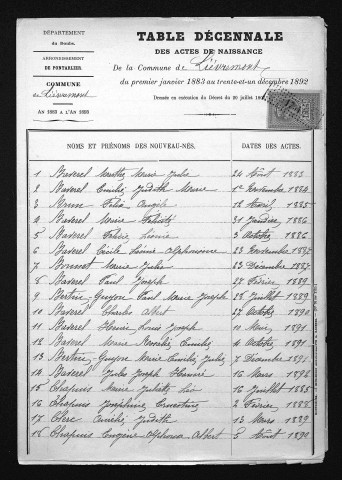 DÉPARTEMENT
du Doubs.
ARRONDISSEMENT
DE PONTARLIER.
COMMUNE
de Lièvremont
AN 1883 A L'AN 1893
TABLE DÉCENNALE
DES ACTES DE NAISSANCE
De la Commune de Lièvremont
du premier janvier 1883 au trente-et-un décembre 1892
Dressée en exécution du Décret du 20 juillet
NOMS ET PRÉNOMS DES NOUVEAU-NÉS. DATES DES ACTES.
1 Baverel Marthe Marie Julie 24 Août 1883
2 Baverel Emilie Judith Marie 1er Novembre 1884
3 Angèle Avril 1885
4 Baverel Marie Félicité 31 Janvier 1886
5 Baverel Léonie 3 Octobre 1886
6 Baverel Cécile Alphonsine 23 Novembre
7 Bonnet Marie Julie 23 Décembre
8 Baverel Paul Joseph 27 Février 1889
9 Bertin-Guyon Paul Marie Joseph 28 Juillet 1889
10 Baverel Charles Albert 27 Octobre 1890
11 Baverel Henri Louis Joseph 10 Mars 1891
12 Baverel Marie Camille 4 Octobre 1891
13 Bertin-Guyon Marie Camille Julie 7 Décembre 1891
14 Baverel Jules Joseph 16 Mars 1892
15 Chapuis Marie Juliette 16 Juillet 1885
16 Chapuis Joséphine Ernestine 2 Février 1888
17 Clerc Aurélie Judith 13 Mars 1889
18 Chapuis Eugène Alphonse Albert 5 Août 1890